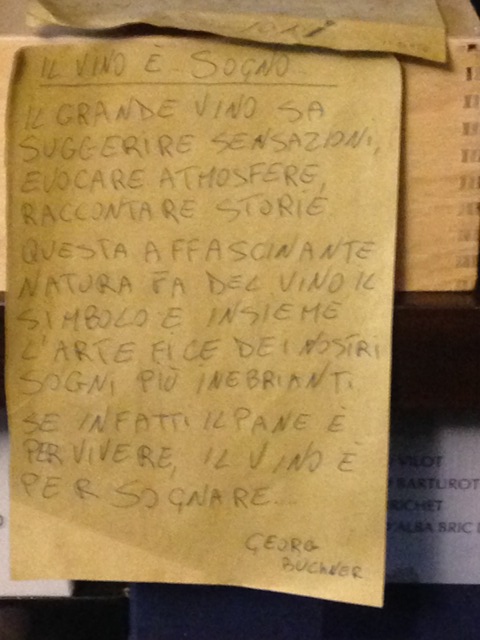 IL VINO È... SOGNO...
IL GRANDE VINO SA
SUGGERIRE SENSAZIONI,
EVOCARE ATMOSFERE,
RACCONTARE STORIE
QUESTA AFFASCINANTE
NATURA FA DEL VINO IL
SIMBOLO E INSIEME
L'ARTEFICE DEI NOSTRI
SOGNI PIÙ INEBRIANTI.
SE INFATTI IL PANE È
PER VIVERE, IL VINO È
PER SOGNARE...
GEORG
BUCHNER
VILOT
BARTUROT
RICHET
D'ALBA BRIC